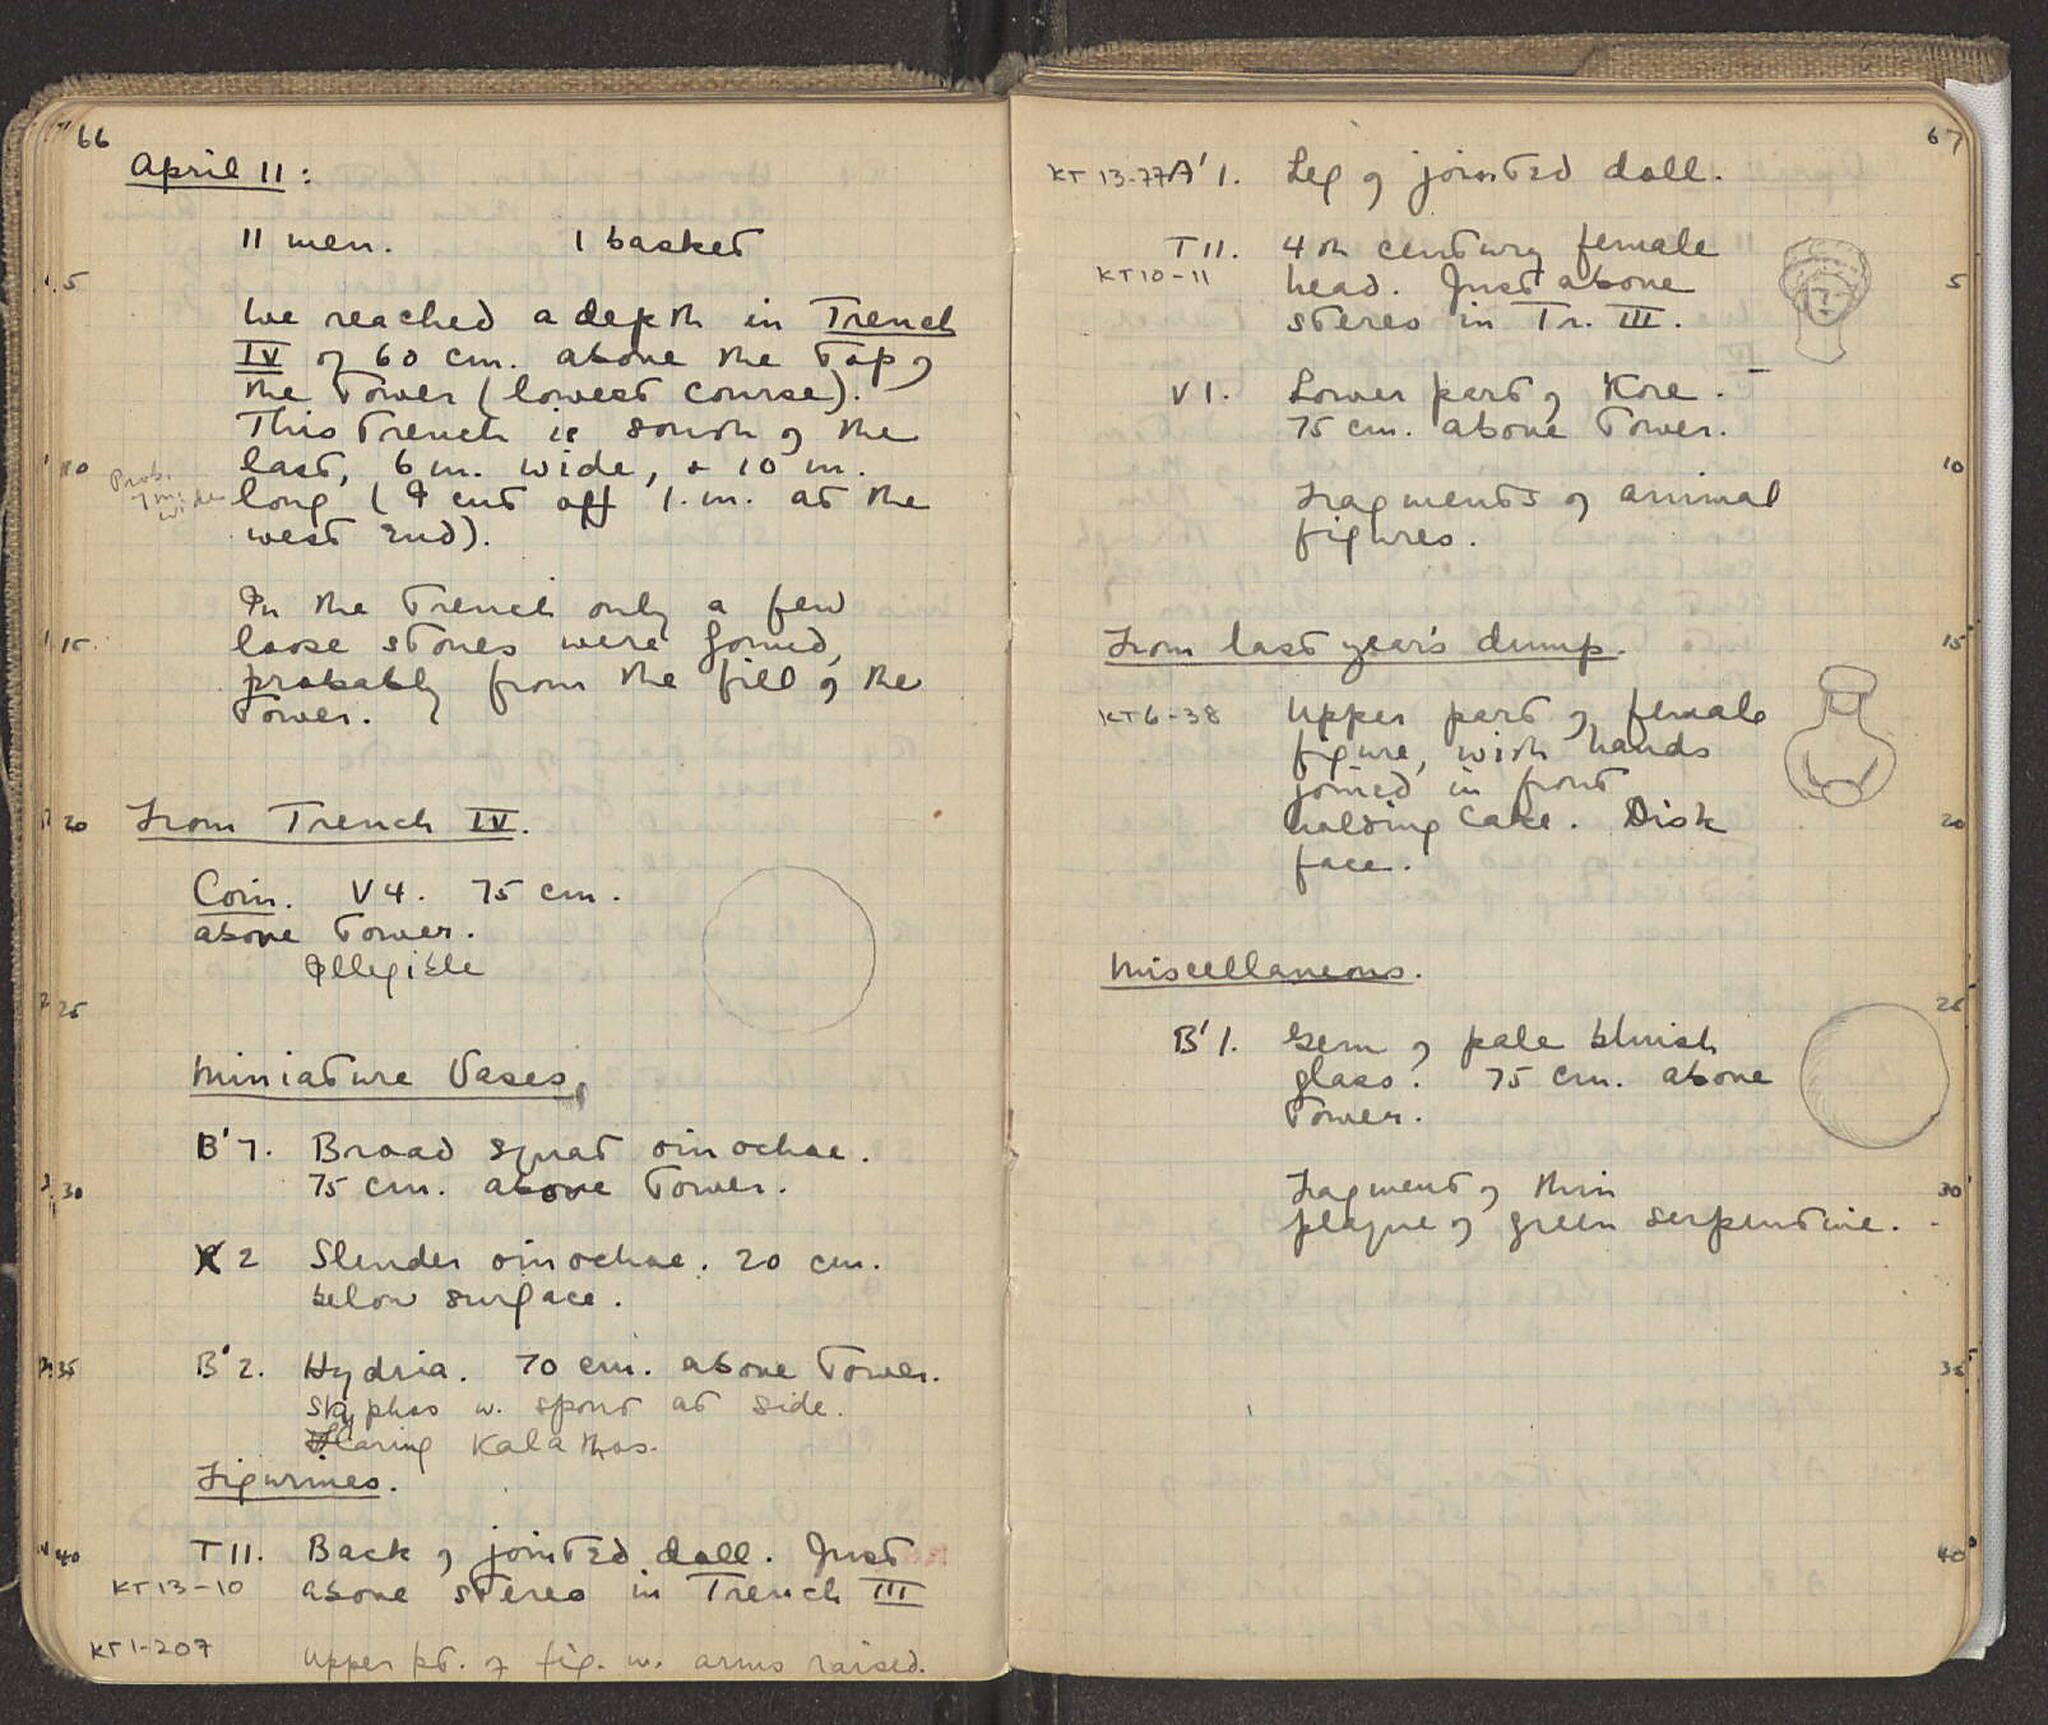 66
April 11:
11 men. 1 basket
5
We reached a depth in Trench
IV of 60 cm. above the top of
the Tower (lowest course).
This trench is south of the
10 last, 6 m. wide, + 10 m.
Prob.
7 m.
wide
long (I cut off 1. m. at the
west end).
In the trench only a few
15 loose stones were found,
probably from the fill of the
Tower.
20 From Trench IV.
Coin. V4. 75 cm.
above Tower.
Illegible
25
Miniature Vases.
B'7. Broad squat oinochoe.
30 75 cm. above Tower.
2 Slender oinochoe. 20 cm.
below surface.
35 B'2. Hydria. 70 cm. above Tower.
Skyphos w. spout at side.
Flaring Kalathos.
Figurines.
40 T11. Back of jointed doll. Just
KT13-10 above stereo in Trench III
KT1-207 Upper pt. of fig. w. arms raised.
67
KT 13-77 A'1. Leg of jointed doll.
T11. 4th century female
KT10-11 head. Just above 5
stereo in Tr. III.
V1. Lower part of Kore.
75 cm. above Tower.
10
Fragments of animal
figures.
From last year's dump. 15
KT6-38 Upper part of female
figure, with hands
joined in front
holding cake. Disk 20
face.
Miscellaneous.
25
B'1. Gem of pale bluish
glass. 75 cm. above
Tower.
Fragment of thin 30
plaque of green serpentine.
35
40